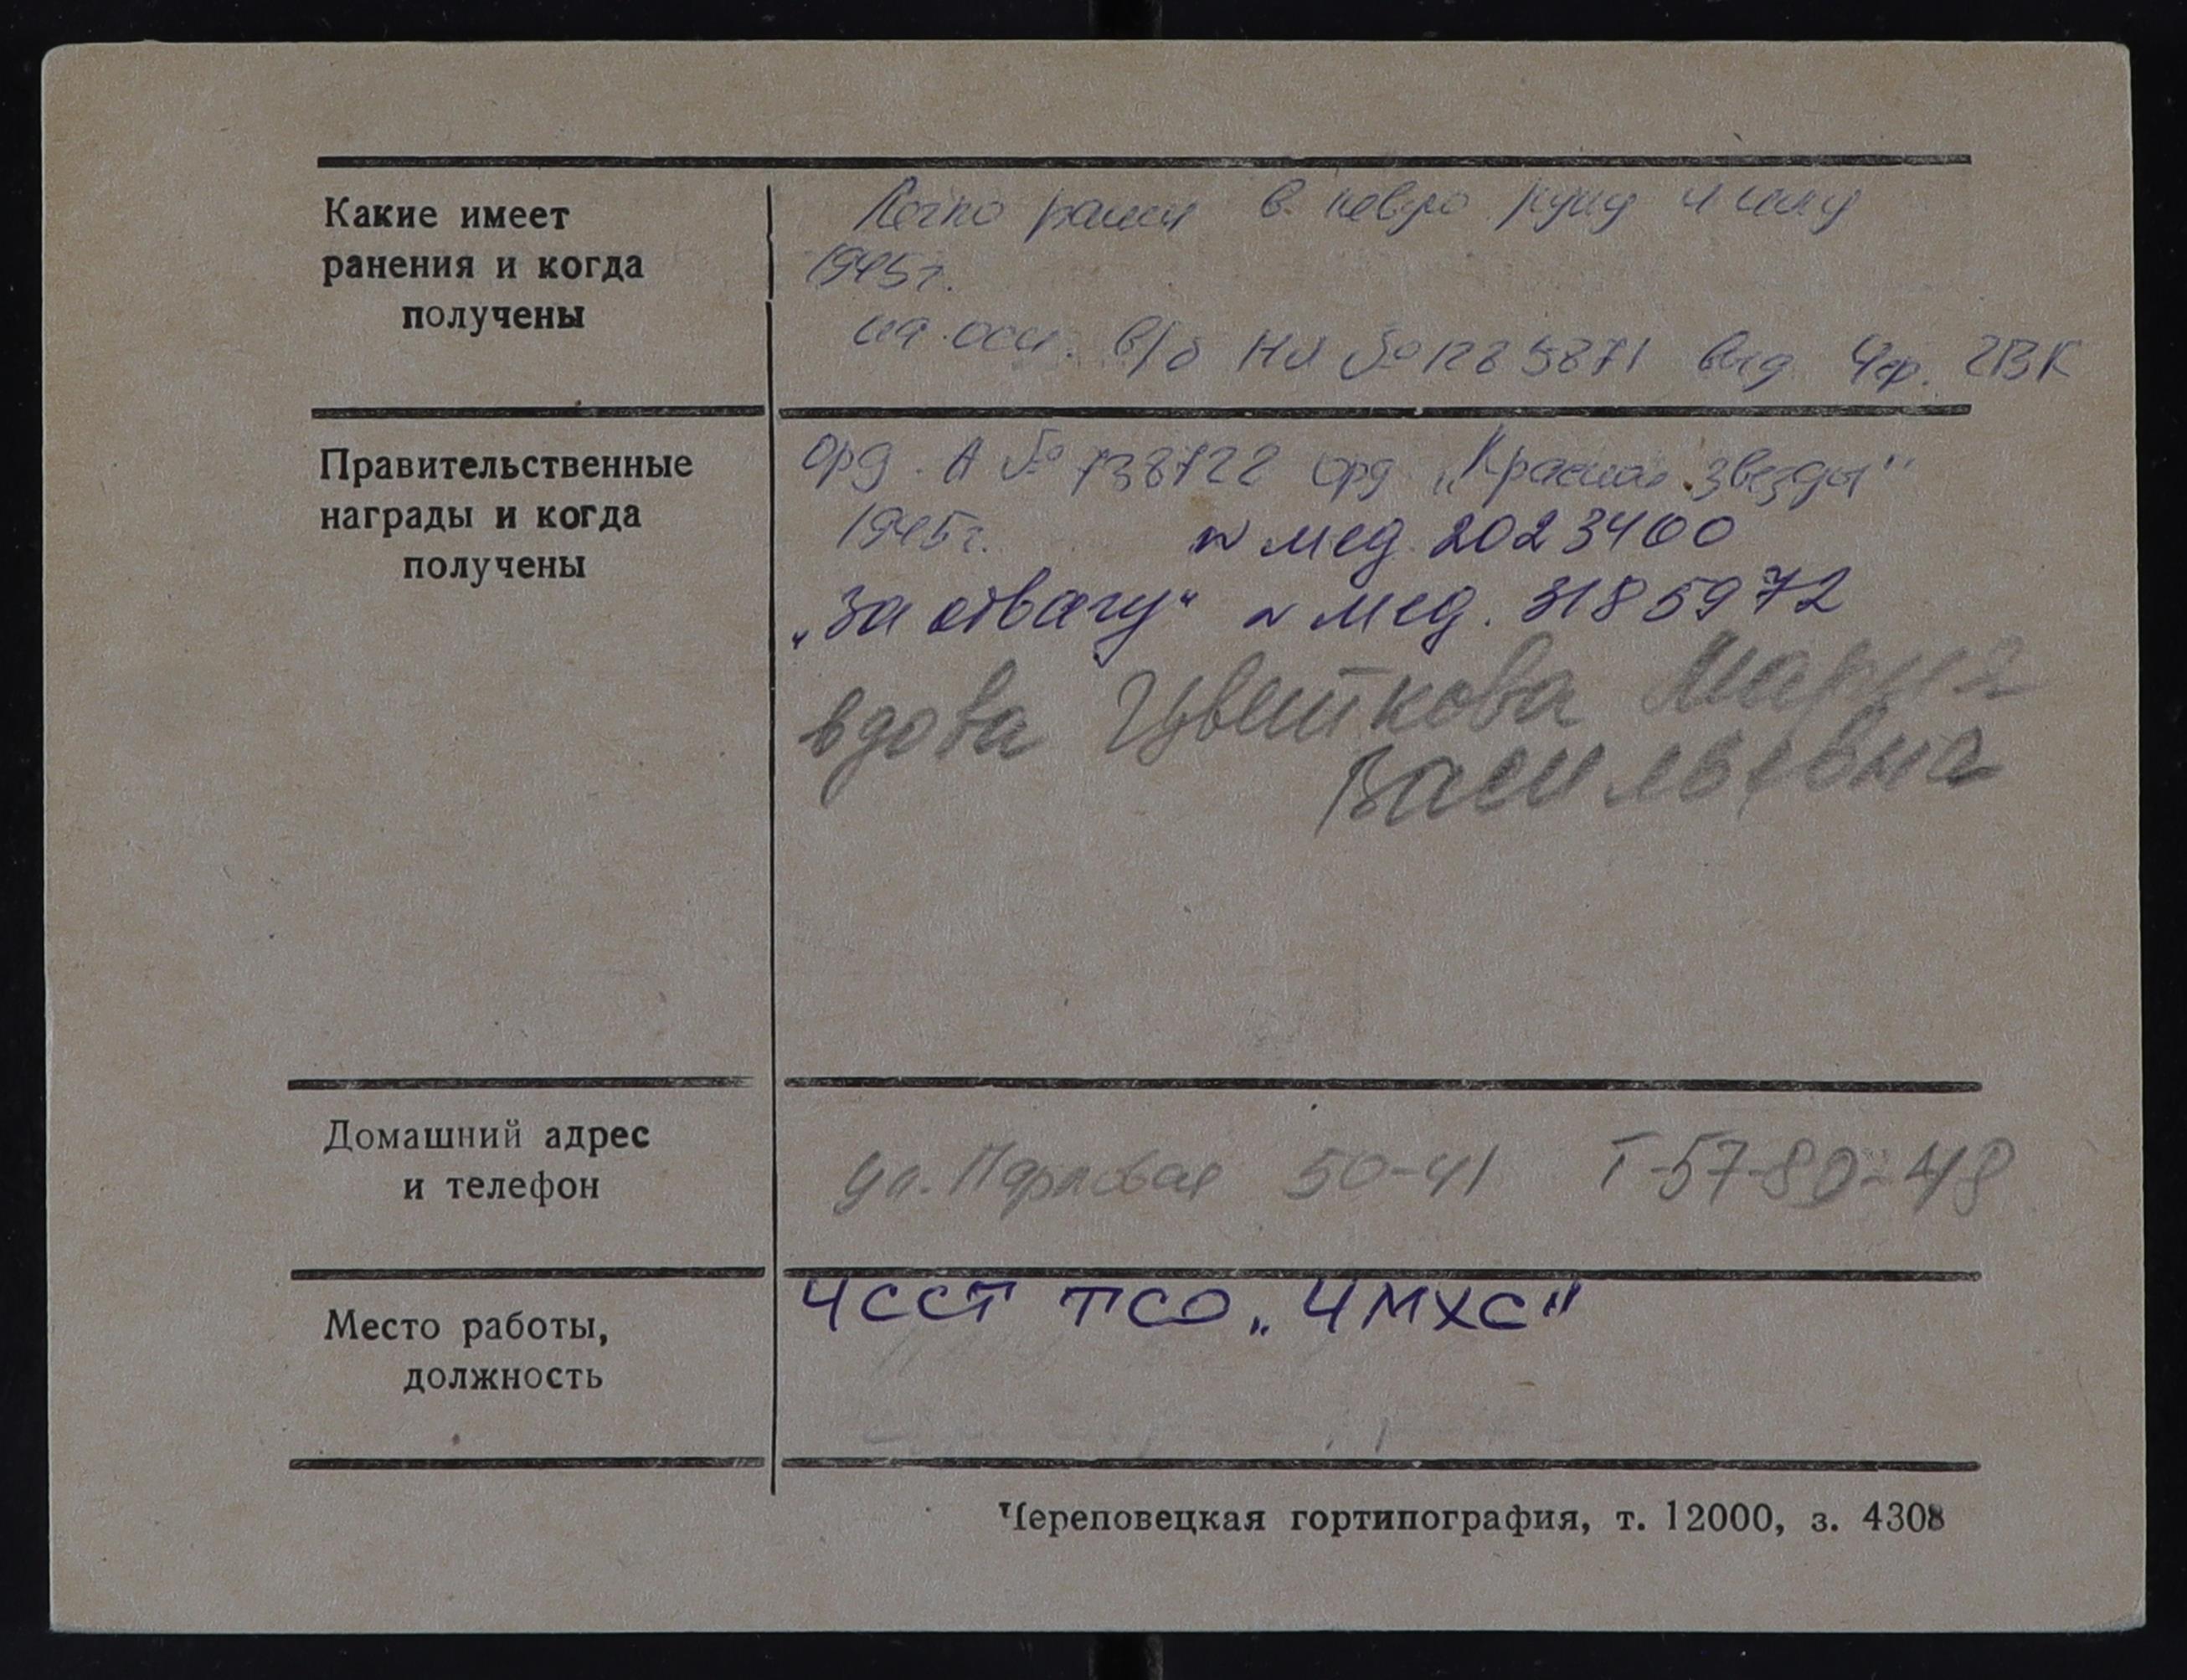 Какие имеет
ранения и когда
получены
Легко ранен в левую руку и
1945г.
на осн. в/б НЯ № выд. Чер. ГВК
Правительственные
награды и когда
получены
орд. А № 738722 орд „Красная звезда"
1945г. № мед. 2023400
„За отвагу" № мед. 3185972
вдова Цветкова Мария
Васильевна
Домашний адрес
и телефон
ул. Парковая 50-41 Т-57-80-48
Место работы,
должность
ЧССТ ТСО „ЧМХС"
Череповецкая гортипография, т. 12000, з. 4308